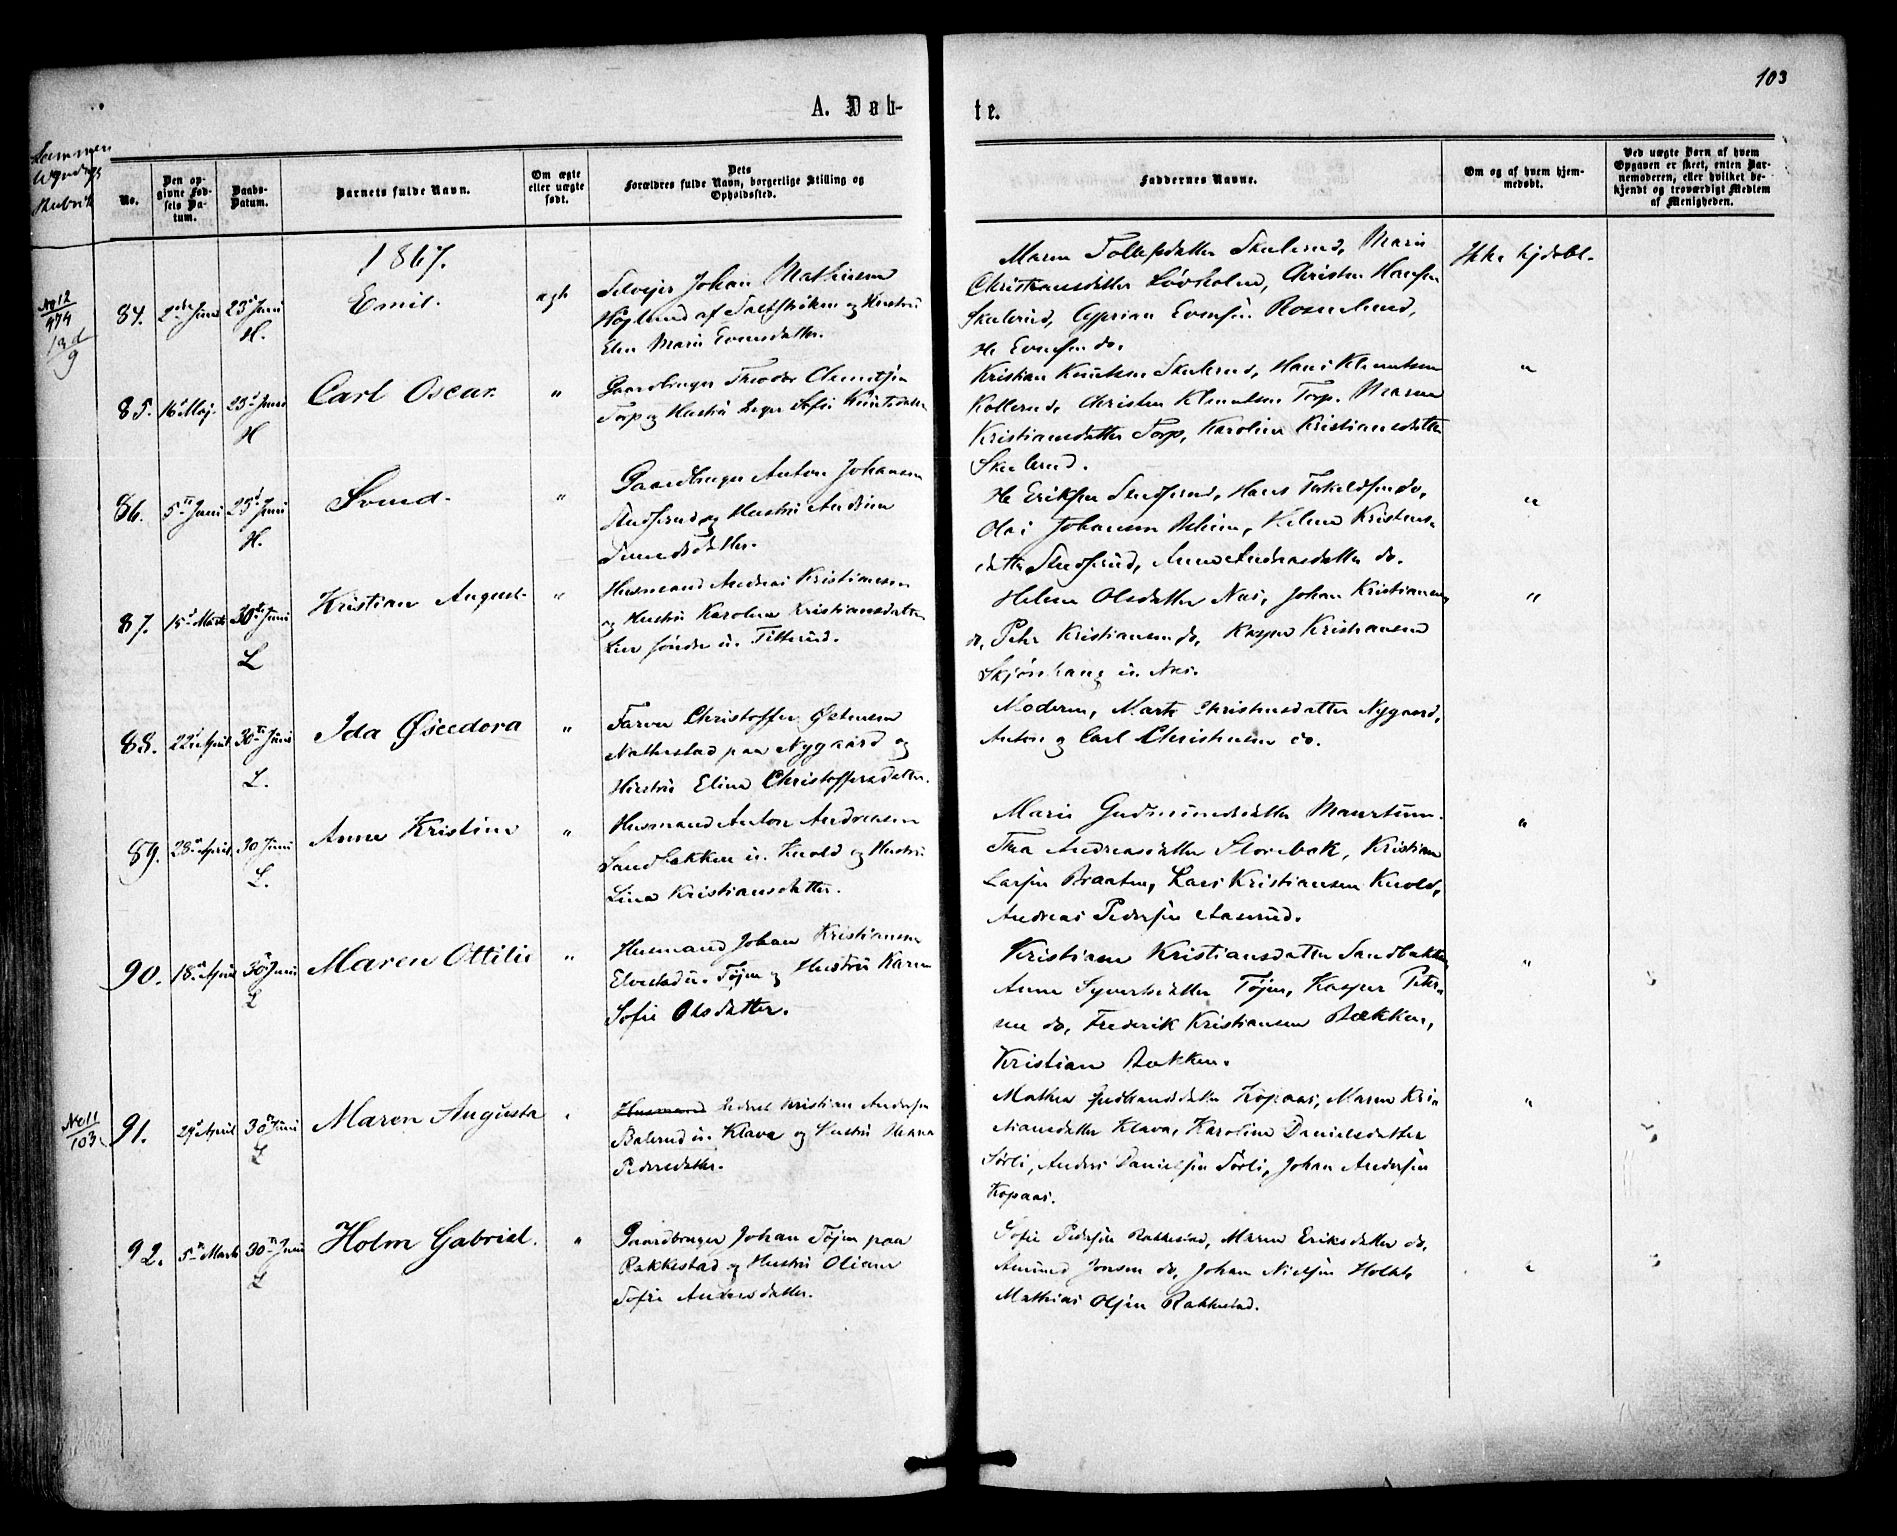 103
A. Døb-
te.
No.
Den op-
givne Fød-
sels Da-
tum.
Daabs-
Datum.
Barnets fulde Navn.
Om ægte
eller uægte
født.
Dets
Forældres fulde Navn, borgerlige Stilling og
Opholdssted.
Faddernes Navne.
Om og af hvem hjem-
medøbt.
Ved uægte Børn af hvem
Opgaven er skeet, enten Bar-
nemoderen, eller hvilket be-
kjendt og troværdigt Medlem
af Menigheden.
1867.
84.
23d Juni
H.
Emil.
ægte
Selveier Johan Mathiesen
og Hustru
Elen Marie Evensdatter.
Maren Tollefsdatter Skulerud, Marie
Christiansdatter Løvholm, Christen Hansen
Skulerud, Cyprian Evensen Rosenlund,
Ole Evensen do.
Ikke hjdøbt.
85.
16d Maj.
23d Juni
H
Carl Oscar.
"
Gaardbruger Theodor Clemetsen
Torp og Hustru Sofie Knutsdatter
Kristian Knutsen Skulerud, Hans Klemetsen
Kollerud, Christen Klemetsen Torp, Maren
Kristiansdatter Torp, Karoline Kristiansdatter
Skulerud.
"
86.
5te Juni
23d Juni
H.
Svend.
"
Gaardbruger Anton Johansen
og Hustru Andrine
Svendsdatter.
Ole Eriksen Hans do,
Johansen Helene Kristens-
datter Anne Andreasdatter do.
"
87.
15d Marts
30te Juni
L
Kristian August.
"
Husmand Andreas Kristiansen
og Hustru Karoline Kristiansdatter
Lien søndre u. Titterud.
Helene Olsdatter Næs, Johan Kristiansen
do, Peter Kristiansen do, Kasper Kristiansen
u. Næs.
"
88.
22d April
30te Juni
L.
Ida Øseedora
"
Farver Christoffer Østensen
Nakkestad paa Nygaard og
Hustru Eline Christoffersdatter.
Moderen, Marte Christensdatter Nygaard,
Anton og Carl Christensen do.
89.
28d April
30 Juni
L.
Anne Kristine
"
Husmand Anton Andreasen
Sandbakken u. Knold og Hustru
Lina Kristiansdatter.
Marie Gudmundsdatter
Thea Andreasdatter Storebæk, Kristian
Larsen Braaten, Lars Kristiansen Knold,
Andreas Pedersen Aaserud.
"
90.
18d April
30te Juni
L
Maren Ottilie
"
Husmand Johan Kristiansen
Elvestad u. Tøjen og Hustru Karen
Sofie Olsdatter.
Kristiane Kristiansdatter Sandbakken
Anne Syversdatter Tøjen, Kasper Peter-
sen do, Frederik Kristiansen Bækken,
Kristian Bækken.
"
No 11
103.
91.
29d April
30te Juni
L
Maren Augusta
Husmand Kristian Andersen
Balerud u. Klava og Hustru
Pedersdatter.
Mathea Kopaas, Maren Kri-
stiansdatter Klava, Karoline Danielsdatter
Sørli, Anders Danielsen Sørli, Johan Andersen
Kopaas.
"
92.
5te Marts
30te Juni
L
Holm Gabriel.
"
Gaardbruger Johan Tøjen paa
Rakkestad og Hustru Oliane
Sofie Andersdatter.
Sofie Pedersen Rakkestad, Maren Eriksdatter do,
Amund Jonsen do, Johan Nielsen
Mathias Olsen Rakkestad.